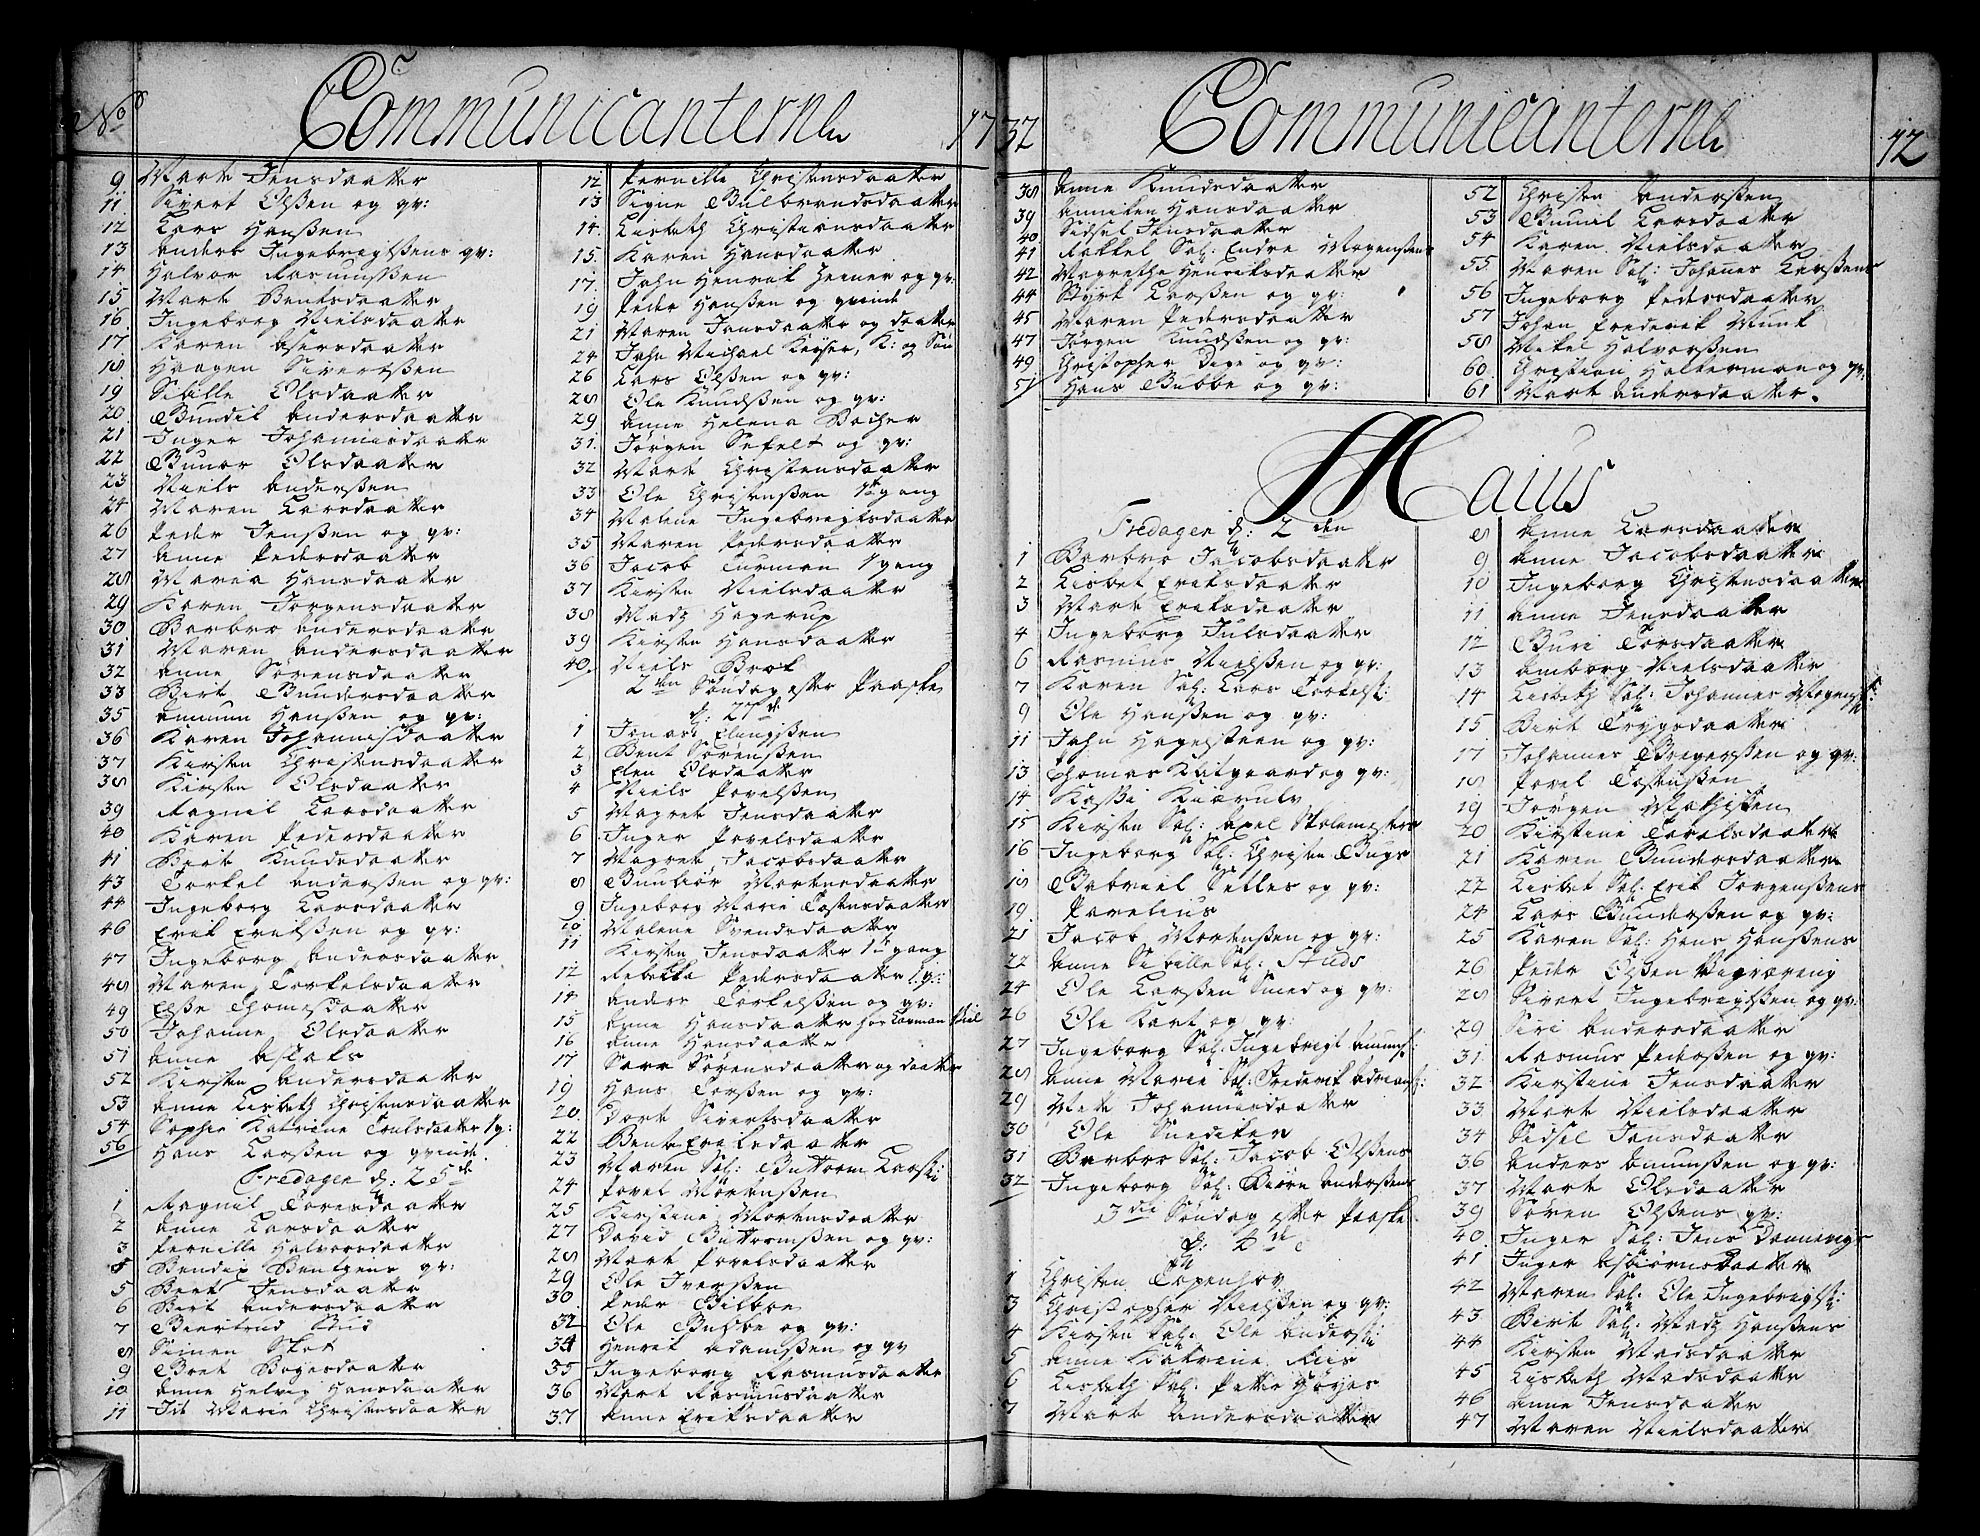 No Communicanterne 17
9 Marte Jensdaatter
11 Sivert Olßen og qv:
12 Lars Hanßen
13 Anders Ingebregtßens qv:
14 Halvor Rasmusßen
15 Marte Bentsdaatter
16 Ingeborg Nielsdaatter
17 Karen Asersdaatter
18 Haagen Sivertßen
19 Sibille Olsdaatter
20 Gundil Andersdaatter
21 Inger Johannisdaatter
22 Gunor Olsdaatter
23 Niels Anderßen
24 Maren Larsdaatter
26 Peder Jenßen og qv:
27 Anne Pedersdaatter
28 Maria Hansdaatter
29 Karen Jørgensdaatter
30 Barbro Andersdaatter
31 Maren Andersdaatter
32 Anne Sørensdaatter
33 Birt Gundersdaatter
35 Amun Hanßen og qv:
36 Karen Johannisdaatter
37 Kirsten Christensdaatter
38 Kirsten Olsdaatter
39 Ragnil Larsdaatter
40 Karen Pedersdaatter
41 Birte Knudsdaatter
43 Torkel Anderßen og qv:
44 Ingeborg Larsdaatter
46 Erik Erikßen og qv:
47 Ingeborg Andersdaatter
48 Maren Torkelsdaatter
49 Elße Thomisdaatter
50 Johanne Olsdaatter
51 Anne Aslaks
52 Kirsten Andersdaatter
53 Anne Lisbeth Christensdaatter
54 Sophie Katrine Trulsdaatter 1 g:
56 Hans Larßen og qvinde.
Fredagen d: 25de
1 Ragnil Toresdaatter
2 Anne Larsdaatter
3 Pernille Halvorsdaatter
4 Bendix Bentzens qv:
5 Berte Jensdaatter
6 Birt Andersdaatter
7 Giertrud Bud
8 Simen Skot
9 Gret Bøgesdaatter
10 Anne Helvig Hansdaatter
11 Idt Marie Christensdaatter
12 Pernille Christensdaatter
13 Signe Gulbrandsdaatter
14. Lisbeth Christiansdaatter
15. Karen Hansdaatter
17. John Henrik Zeiner og qv:
19 Peder Hanßen og qvinde
21 Maren Jonsdaatter og daatter
24 John Michael Keyser, K: og Søn
26 Lars Olßen og qv:
28 Ole Knudßen og qv:
29 Anne Helena Bøcher
31. Jørgen Sefelt og qv:
32 Marte Christensdaatter
33 Ole Christenßen 1ste gang
34 Malene Ingebregtsdaatter
35 Maren Pedersdaatter
36 Jacob Turman 1 gang
37 Kirsten Nielsdaatter
38 Madz Hagerup
39 Kirsten Hansdaatter
40. Niels Brok
2den Søndag efter Paaske
d: 27de
1 Jonas Elingßen
2 Bent Sørenßen
3 Elen Olsdaatter
4 Niels Povelßen
5 Magrete Jensdaatter
6 Inger Povelsdaatter
7 Magrete Jacobsdaatter
8 Gunbiør Mortensdaatter
9 Ingeborg Marie Tostensdaatter
10 Malene Svendsdaatter
11 Kirsten Jensdaatter 1te gang
12 Rebekka Pedersdaatter 1 g:
14 Anders Torkelßen og qv:
15 Anne Hansdaatter hos Laxman Kiil
16 Anne Hansdaatter
17 Sara Sørensdaatter og daatter
19 Hans Larßen og qv:
20. Dort Sivertsdaatter
22 Bente Eriksdaatter
23 Maren Sal: Guttorm Larsß:
24 Povel Mortenßen
25 Kirstine Mortensdaatter
27 David Guttormßen og qv:
28 Marte Povelsdaatter
29 Ole Iverßen
30 Peder Gilboe
32 Ole Bubbe og qv:
34 Henrik Adamßen og qv
35 Ingeborg Rasmusdaatter
36 Marte Rasmusdaatter
37 Anne Eriksdaatter
32 Communicanterne 42
38 Anne Knudsdaatter
39 Anniken Hansdaatter
40 Sidsel Jensdaatter
41 Rakkel Sal: Endre Mogensßens
42 Magrethe Henriksdaatter
44 Styrk Larßen og qv:
45 Maren Pedersdaatter
47 Jørgen Knudßen og qv:
49 Christopher Dige og qv:
51 Hans Bubbe og qv:
52 Christen Anderßen
53 Gunnil Larsdaatter
54 Karen Nielsdaatter
55 Maren Sal: Johannes Larßens
56 Ingeborg Pedersdaatter
57 Johan Frederik Munk
58 Mikel Halvorßen
60. Christian Halterman og qv:
61 Marte Andersdaatter.
Maius
Fredagen d: 2den
1 Barbro Jacobsdaatter
2 Lisbet Eriksdaatter
3 Marte Eriksdaatter
4 Ingeborg Julsdaatter
6 Rasmus Nielßen og qv:
7 Karen Sal: Lars Torkelsß:
9 Ole Hanßen og qv:
11 John Hagelsteen og qv:
13 Thomas Klitgaard og qv:
14 Kaßi Kiærulv
15 Kirsten Sal: Axel Skolemesters
16 Ingeborg Sal: Christen Bugs
18 Gabriel Selles og qv:
19. Pavelius
21 Jacob Mortenßen og qv:
22 Anne Sibille Sal: Studs
24 Ole Larßen Smed og qv:
26 Ole Kort og qv:
27 Ingeborg Sal: Ingebregt Amunsß:
28 Anne Marie Sal: Frederik Adriansß:
29 Mette Johannisdaatter
30 Ole Snediker
31 Barbro Sal: Jacob Olßens
32 Ingeborg Sal: Biørn Anderßens
3die Søndag efter Paaske
d: 4de
1 Christen Topenhov
3 Christopher Nielßen og qv:
4 Kirsten Sal: Ole Andersß:
5 Anne Katrine Reis
6 Lisbeth Sal: Petter Høyes
7 Marte Andersdaatter
8 Anne Larsdaatter
9 Anne Jacobsdaatter
10 Ingeborg Christensdaatter
11 Anne Jensdaatter
12 Guri Torsdaatter
13 Amborg Nielsdaatter
14 Lisbeth Sal: Johannes Mogensß:
15 Birt Trygsdaatter
17 Johannes Gregersßen og qv:
18 Povel Tostenßen
19 Jørgen Mathisßen
20 Kirstine Torelsdaatter
21 Karen Gundersdaatter
22 Lisbet Sal: Erik Jørgenßens
24 Lars Gunderßen og qv:
25 Karen Sal: Hans Hanßens
26 Peder Olßen
28 Sivert Ingebregtßen og qv:
29 Siri Andersdaatter
31. Rasmus Pederßen og qv:
32 Kirstine Jensdaatter
33 Marte Nielsdaatter
34 Sidsel Jonsdaatter
36 Anders Amunßen og qv:
37 Marte Olsdaatter
39 Søren Olßens qv:
40 Inger Sal: Jens Dannevigs
41 Inger Asbiørnsdaatter
42 Maren Sal: Ole Ingebregtsß:
43 Birt Sal: Madz Hanßens
44 Kirsten Madsdaatter
45 Lisbeth Madsdaatter
46 Anne Jensdaatter
47 Maren Nielsdaatter